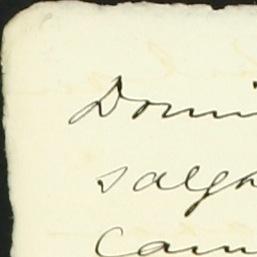 Domi
salgh
Cam